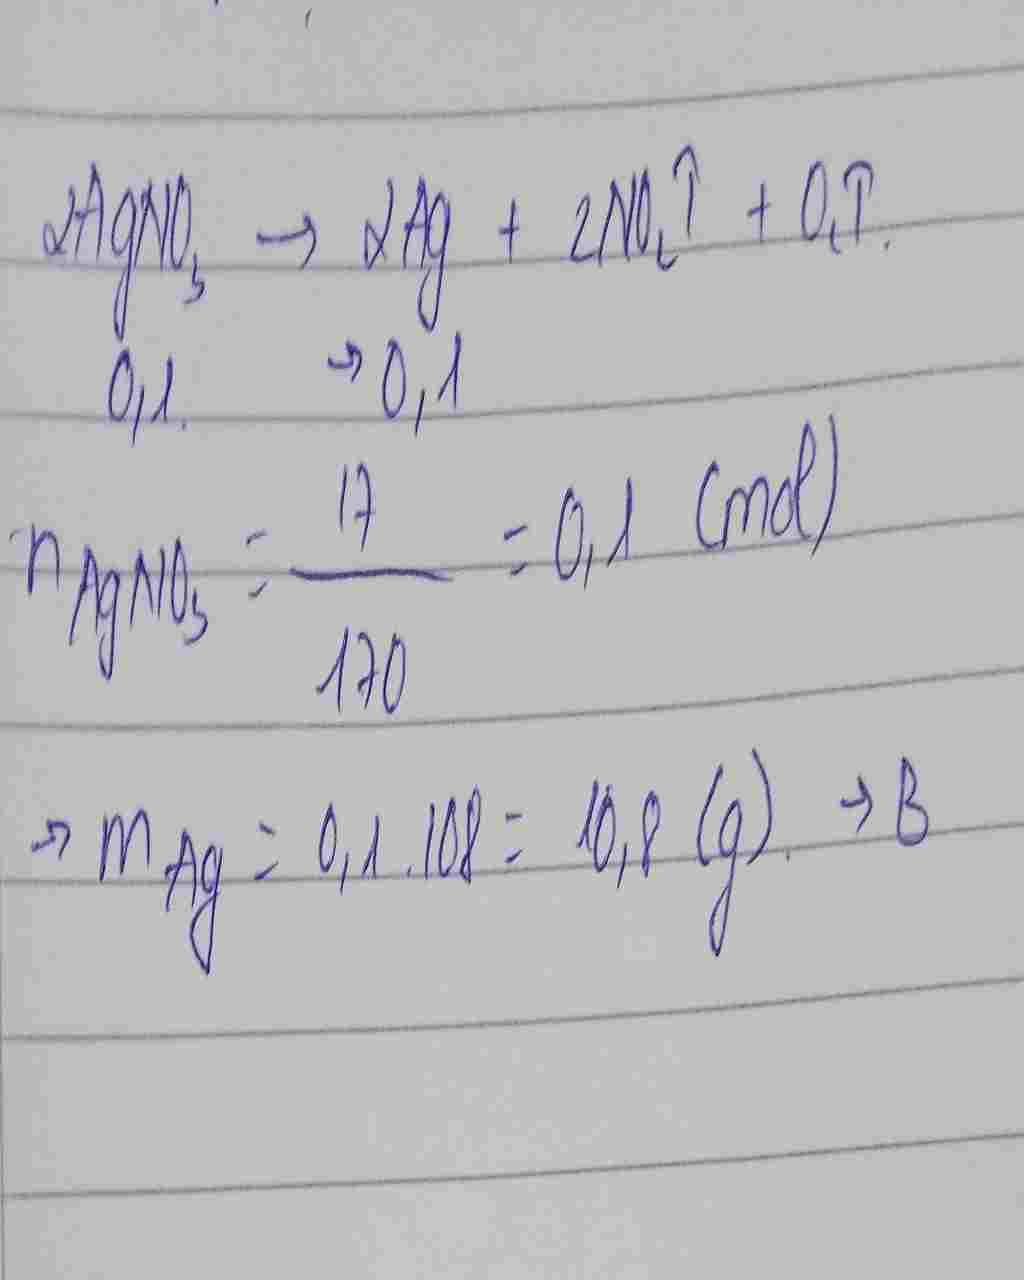 2AgNO₃ → 2Ag + 2NO₂↑ + O₂↑.
0,1. → 0,1
n AgNO₃ = 17/170 = 0,1 (mol)
→ m Ag = 0,1.108 = 10,8 (g). → B